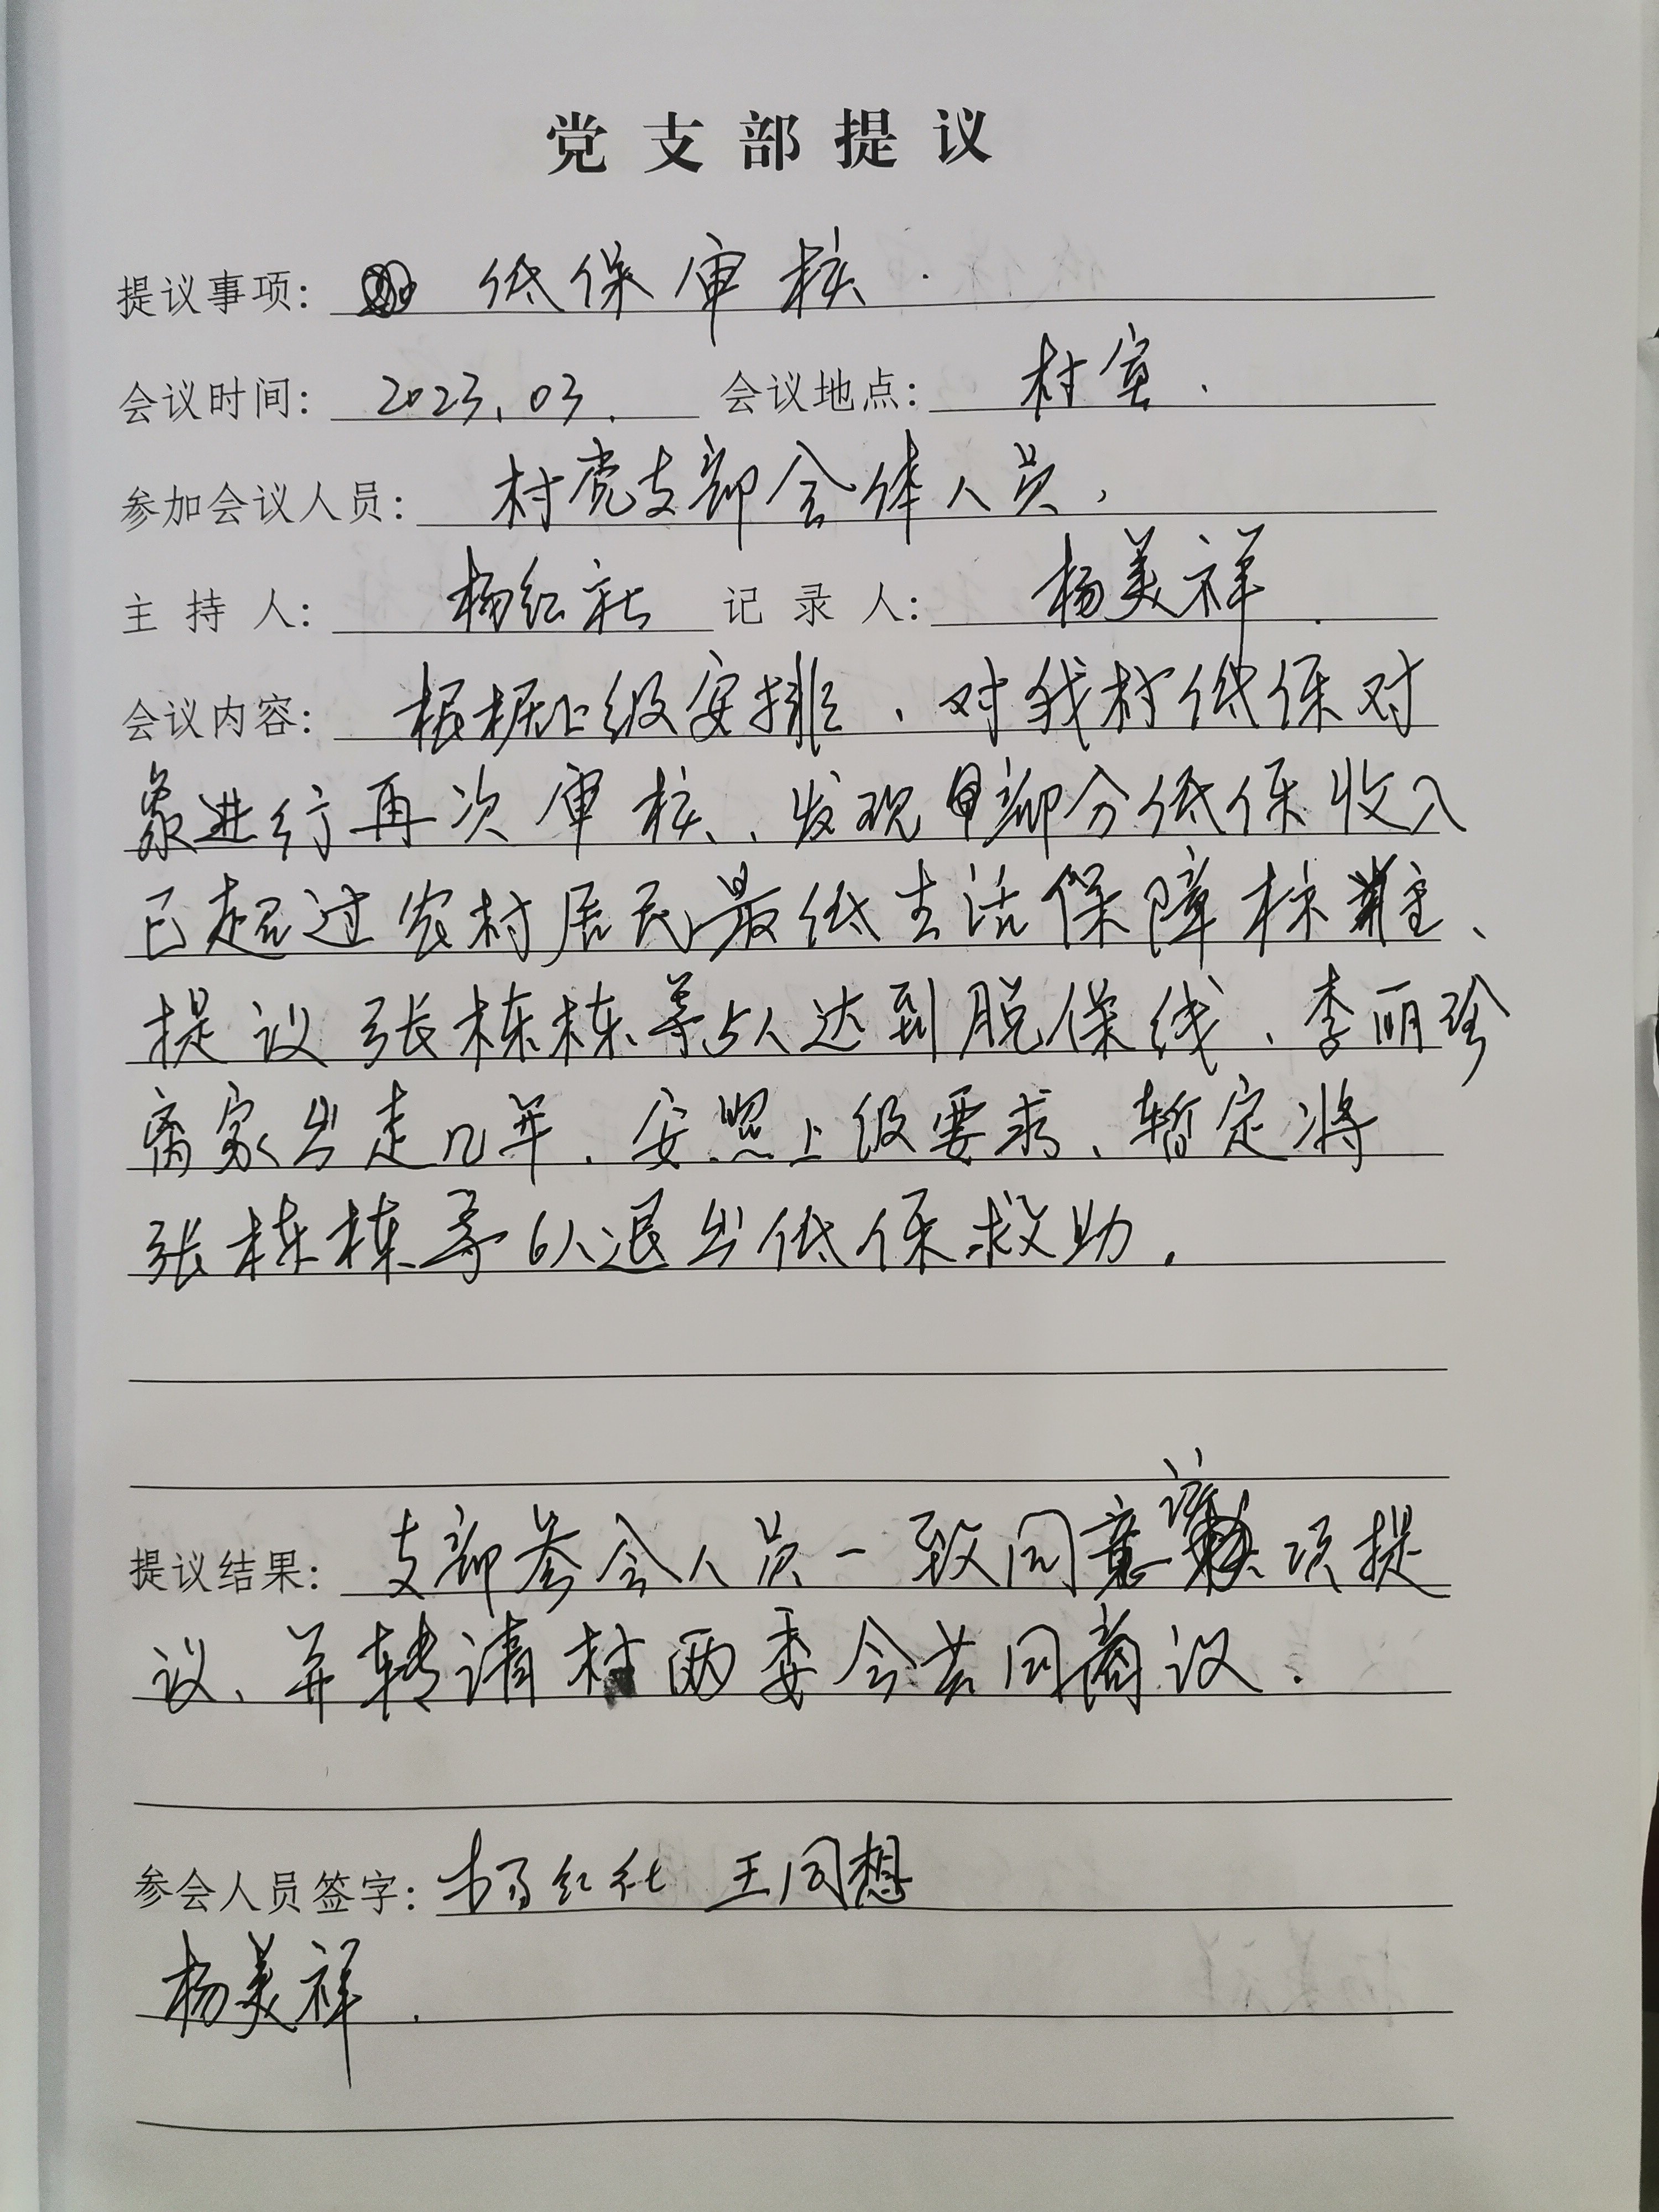 党支部提议
提议事项: 低保审核.
会议时间: 2023.03. 会议地点: 村室.
参加会议人员: 村党支部全体人员,
主持人: 杨红社 记录人: 杨美祥.
会议内容: 根据上级安排,对我村低保对
象进行再次审核、发现部分低保收入
已超过农村居民最低生活保障标准、
提议张栋栋等5人达到脱保线、李丽珍
离家出走几年.安照上级要求、暂定将
张栋栋等6人退出低保救助.
提议结果: 支部参会人员一致同意该项提
议、并转请村两委会共同商议.
参会人员签字: 杨红社 王同想
杨美祥.